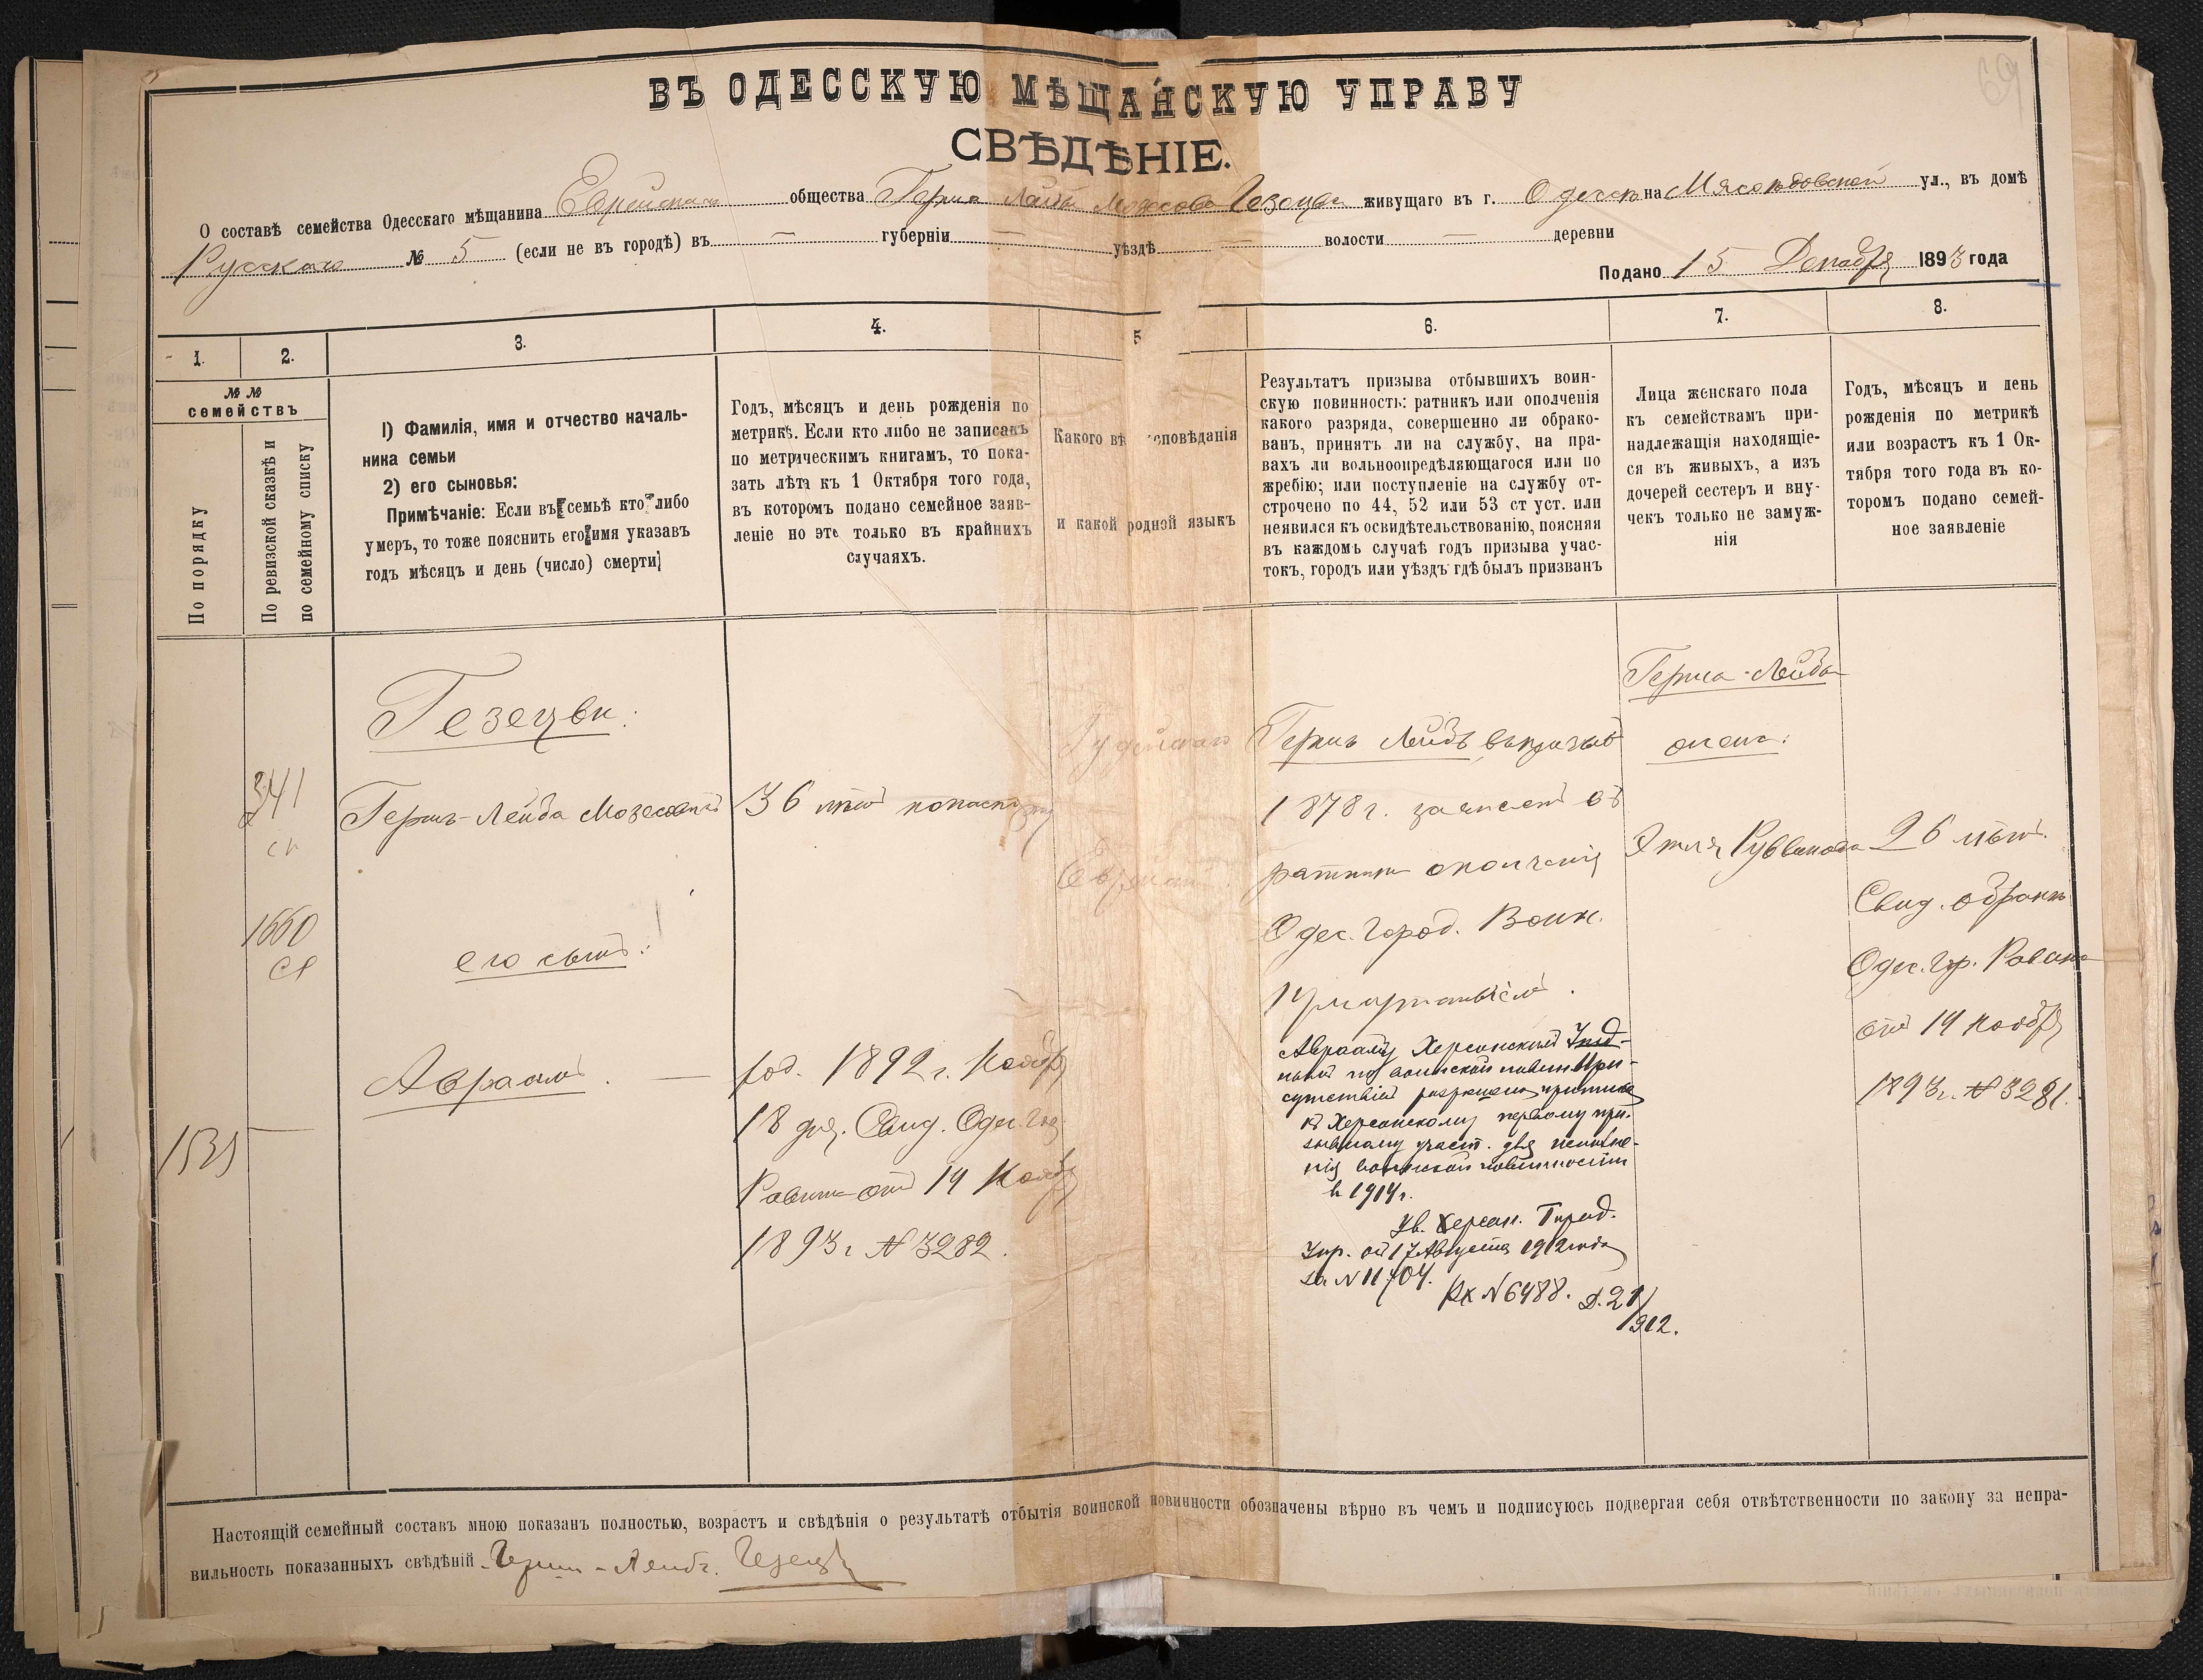 69
ВЪ ОДЕССКУЮ МѢЩАНСКУЮ УПРАВУ
СВѢДѢНІЕ.
О составѣ семейства Одесскаго мѣщанина Еврейскаго общества Герша Лейбы Мозесова Гезецви живущаго въ г. Одессѣ на Мясоѣдовской ул., въ домѣ
Русскаго № 5 (если не въ городѣ) въ — губерніи — уѣздѣ — волости — деревни
Подано 15 Декабря 1893 года
1.
2.
3.
4.
5
6.
7.
8.
№ №
семействъ
По порядку
По ревизской сказкѣ и
по семейному списку
1) Фамилія, имя и отчество началь-
ника семьи
2) его сыновья:
Примѣчаніе: Если въ семьѣ кто либо
умеръ, то тоже пояснить его имя указавъ
годъ мѣсяцъ и день (число) смерти
Годъ, мѣсяцъ и день рожденія по
метрикѣ. Если кто либо не записанъ
по метрическимъ книгамъ, то пока-
зать лѣта къ 1 Октября того года,
въ которомъ подано семейное заяв-
леніе но это только въ крайнихъ
случаяхъ.
Какого вѣ сповѣданія
и какой родной языкъ
Результатъ призыва отбывшихъ воин-
скую повинность: ратникъ или ополченія
какого разряда, совершенно ли обрако-
ванъ, принятъ ли на службу, на пра-
вахъ ли вольноопредѣляющагося или по
жребію; или поступленіе на службу от-
строчено по 44, 52 или 53 ст уст. или
неявился къ освидѣтельствованію, поясняя
въ каждомъ случаѣ годъ призыва учас-
токъ, городъ или уѣздъ гдѣ былъ призванъ
Лица женскаго пола
къ семействамъ при-
надлежащія находящіе-
ся въ живыхъ, а изъ
дочерей сестеръ и вну-
чекъ только не замуж-
нія
Годъ, мѣсяцъ и день
рожденія по метрикѣ
или возрастъ къ 1 Ок-
тября того года въ ко-
торомъ подано семей-
ное заявленіе
Гезецви:
341
сп
Гершъ-Лейба Мозесовъ
1660
его сынъ:
Авраамъ. —
36 лѣтъ
род. 1892 г. Ноября
18 дня. Свид. Одес. Гор.
Равина отъ 19 Ноября
1893 г. № 3282.
Іудейскаго
Еврейскій
Гершъ Лейбъ въ призывъ
1878 г. зачисленъ въ
ратники ополченія
Одес. Город. Воин.
Присутствіемъ.
Аврааму Херсонскимъ Уѣзд-
нымъ по воинской повин. При-
сутствіемъ разрешена приписка
къ Херсонскому первому при-
зывному участ. для исполне-
нія воинской повинности
въ 1914 г.
Ув. Херсон. Город.
Упр. отъ 17 Августа 1912 года
за № 11704.
Вх № 6488. Д. 21/
912.
Герша-Лейба
жена:
Этля Рувинова
26 лѣтъ.
Свид. о бракѣ
Одес. Гр. Равина
отъ 19 Ноября
1893 г. № 3281.
Настоящій семейный составъ мною показанъ полностью, возрастъ и свѣдѣнія о результатѣ отбытія воинской повинности обозначены вѣрно въ чемъ и подписуюсь подвергая себя отвѣтственности по закону за непра-
вильность показанныхъ свѣдѣній Герш-Лейб. Гезецви